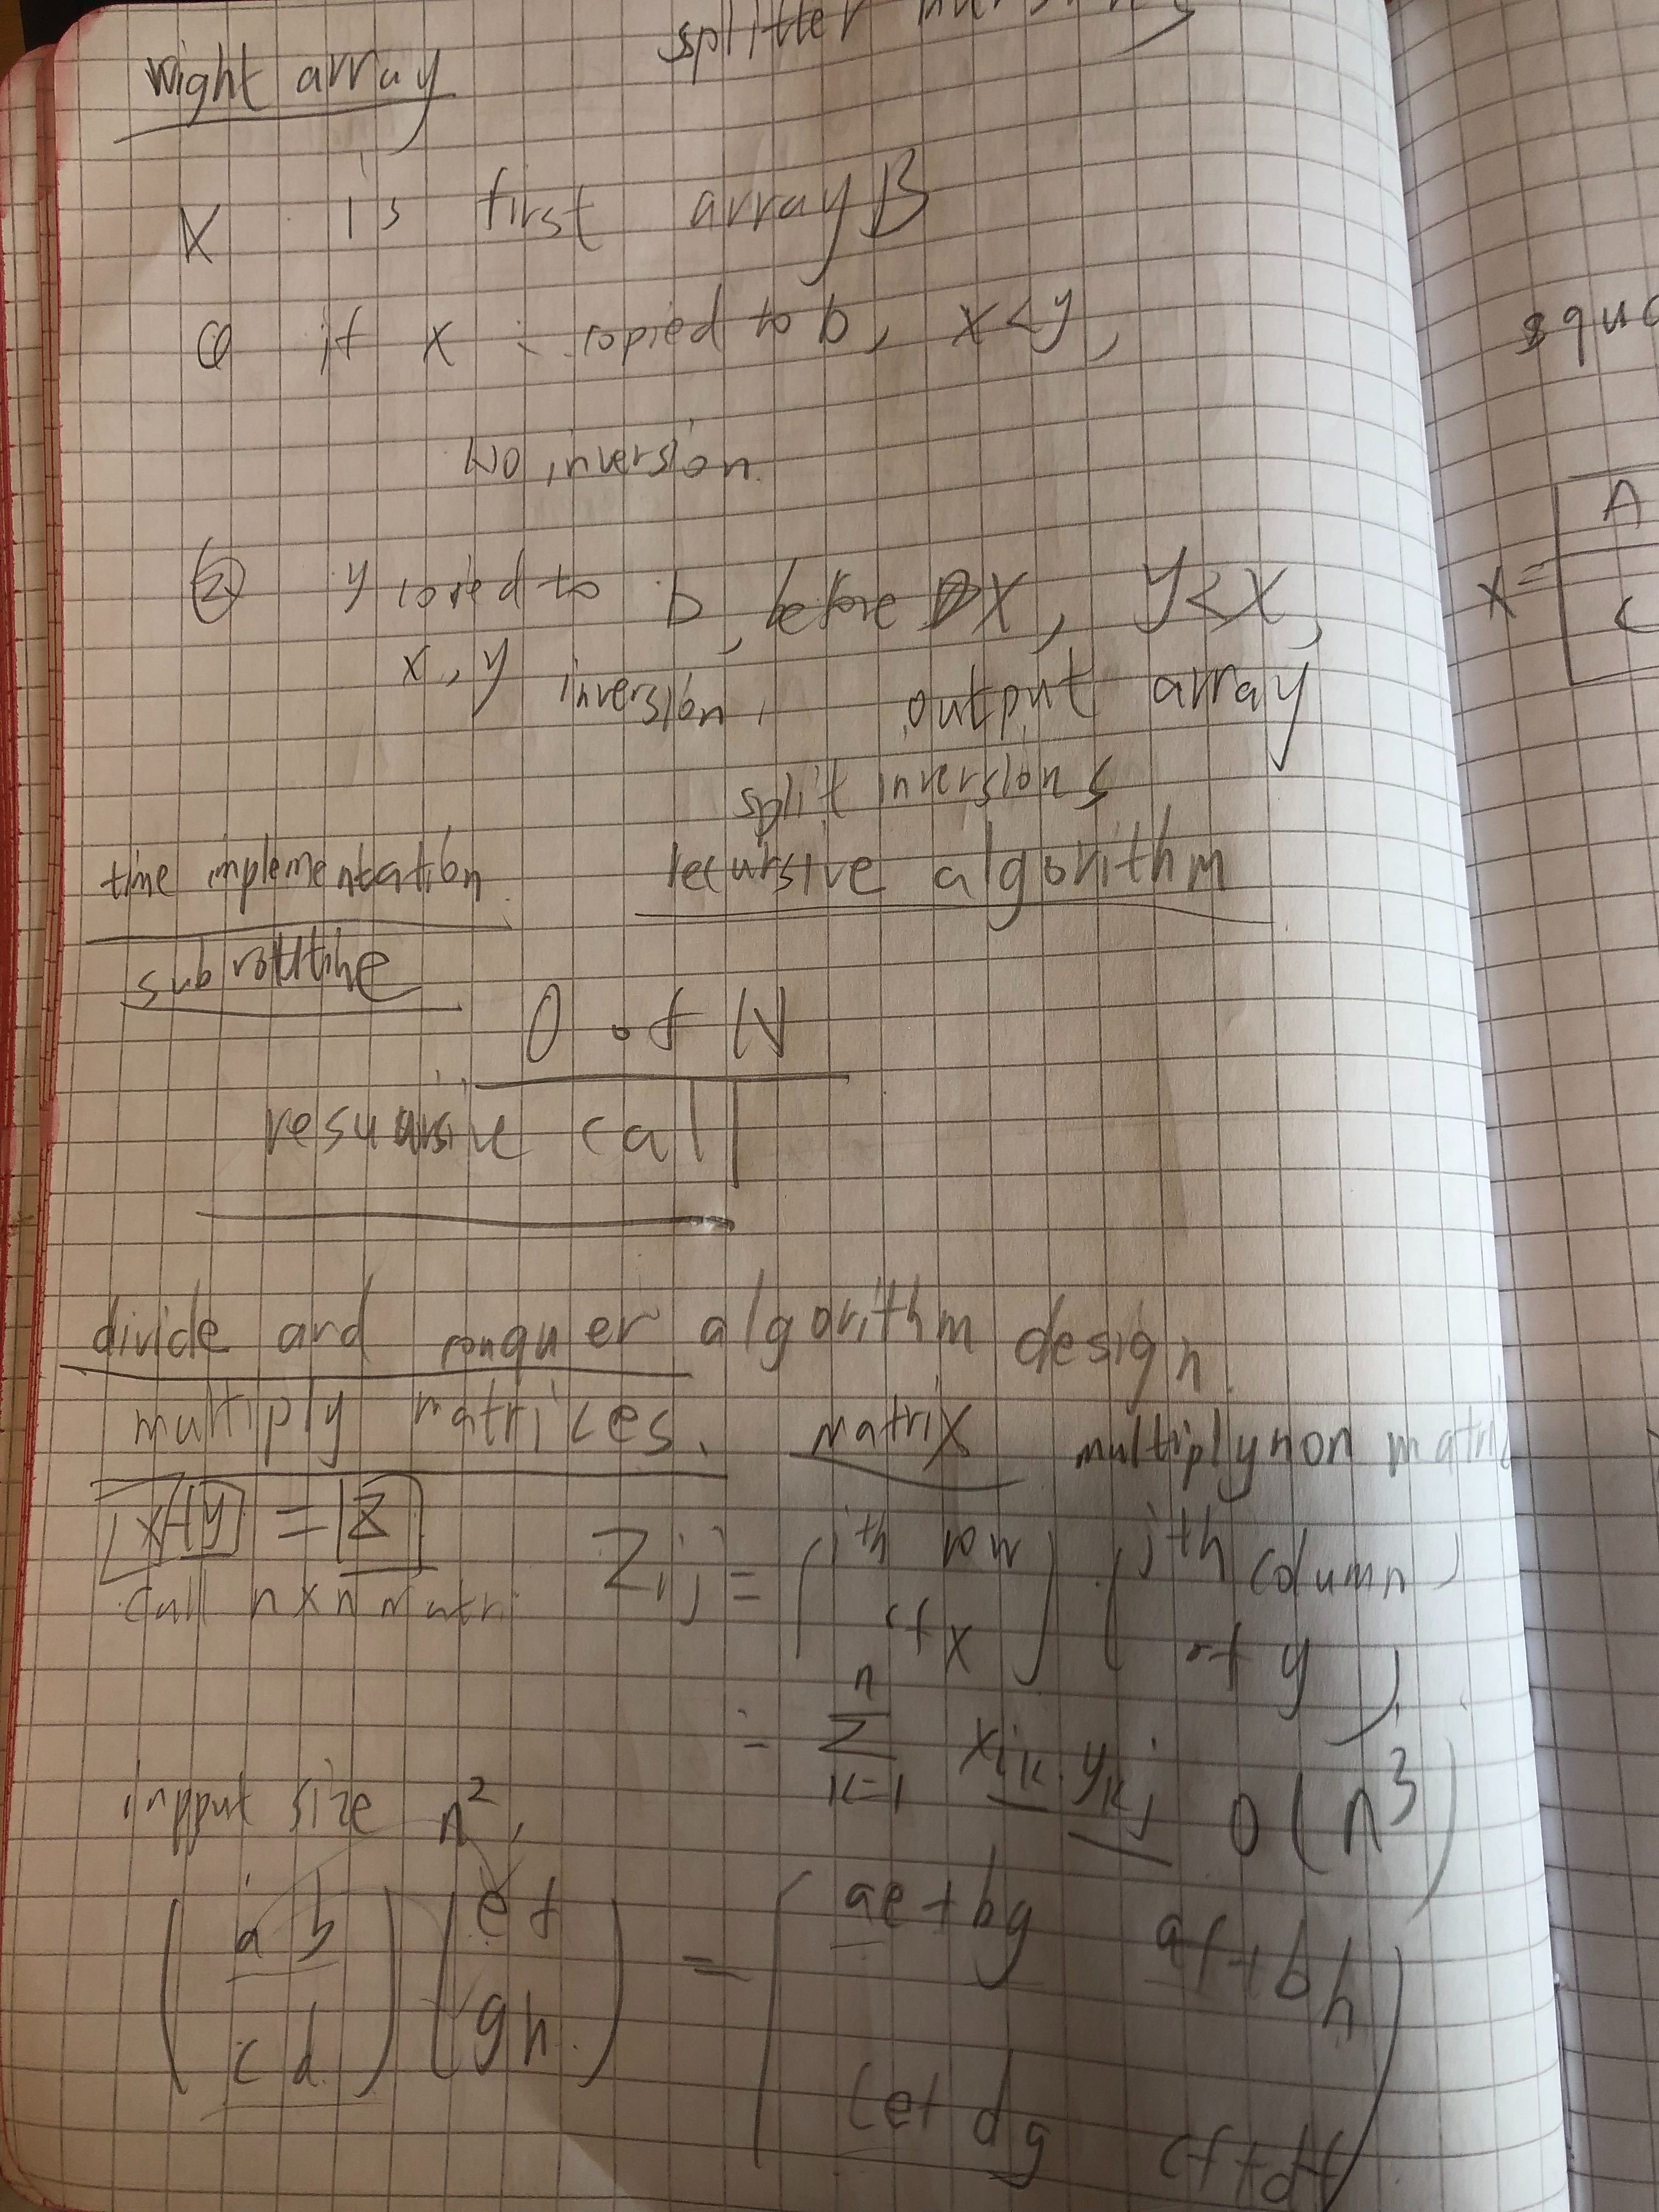 splitter inversions
right array
X is first array B
① if x copied to b, x<y,
No inversion.
② y copied to b, before X, y<X,
x, y inversion, output array
split inversions
time implementation recursive algorithm
subroutine
O of N
resuarsive call
divide and conquer algorithm design.
multiply matrices. matrix multiply non matric
X Y = Z Zij = (ith row of x) · (jth column of y)
call n x n matri
= Σ n k=1 xik · ykj O(n³)
inpput size n²,
(a b c d) (e f g h) = (ae+bg af+bh
ce+dg cf+df)
squa
x = A
C